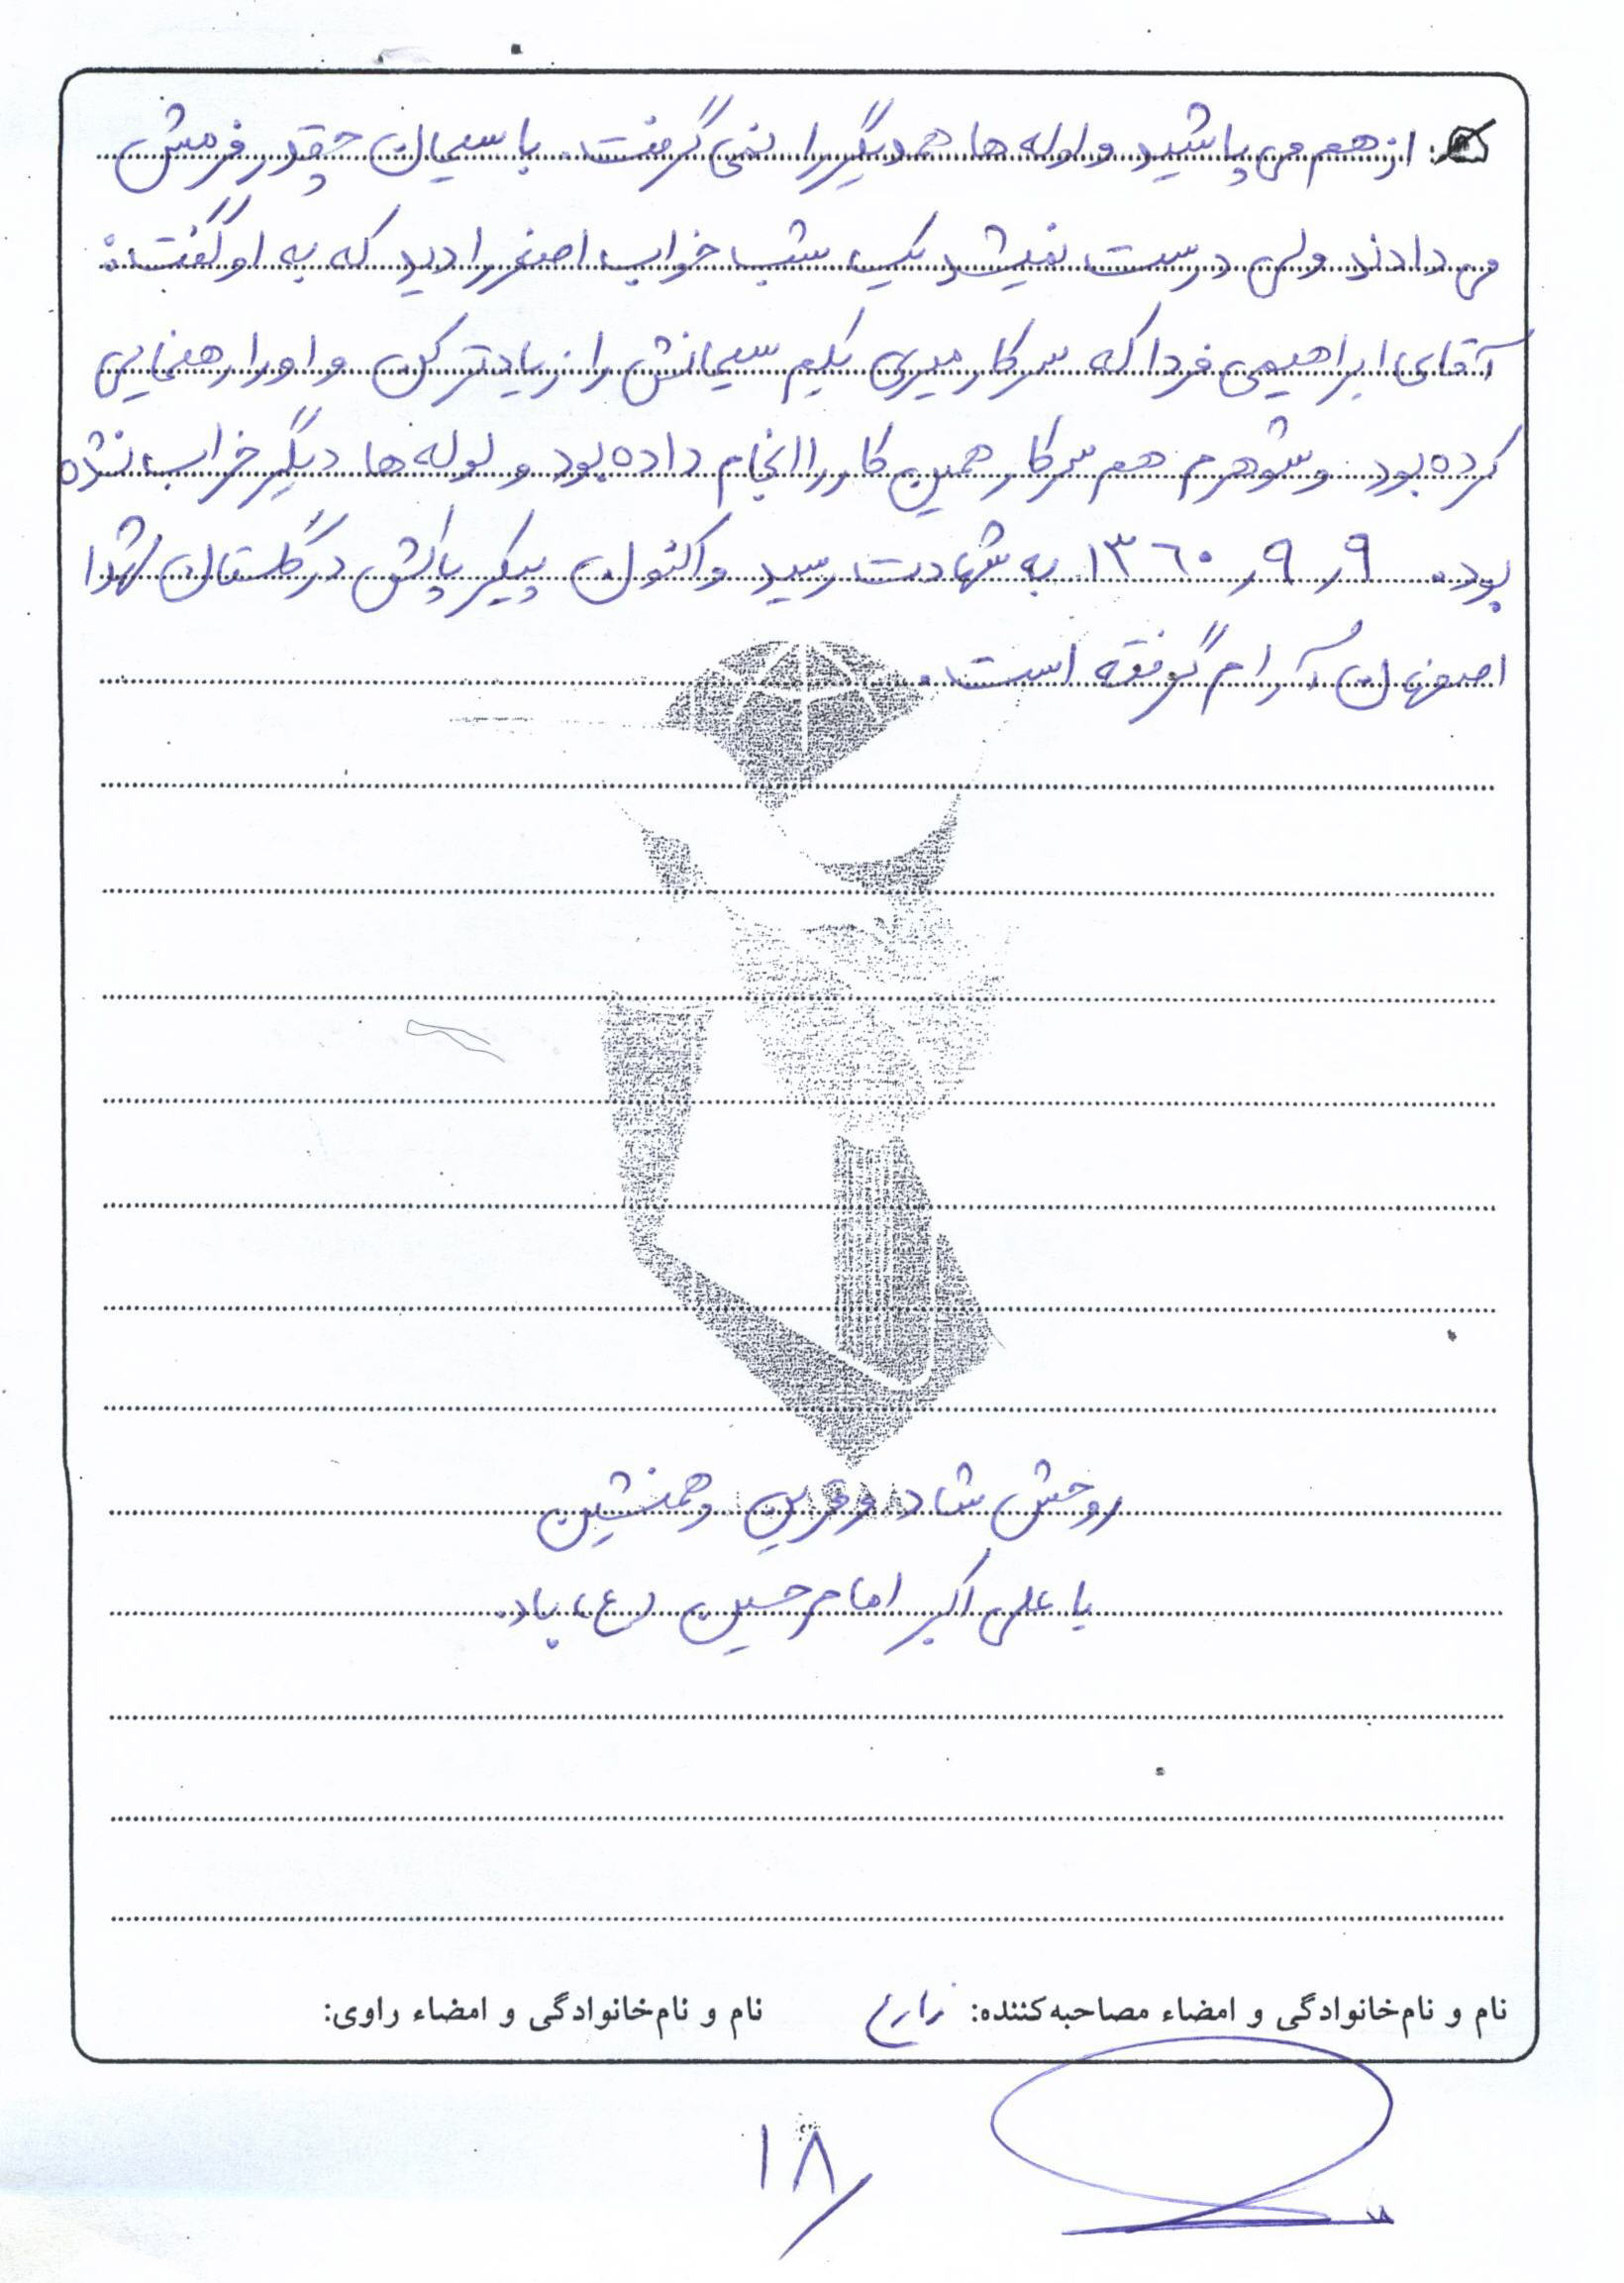 از هم می پاشید و لوله ها همدیگر را نمی گرفت. با سیمان چقدر فرمش
می دادند ولی درست نمیشد یک شب خواب اصغر را دید که به او گفت:
آقای ابراهیمی فردا که سرکار میری یکم سیمانش را زیادتر کن و او را راهنمایی
کرده بود. و شوهرم هم سرکار همین کار را انجام داده بود و لوله ها دیگر خراب نشده
بود. ۹ر ۹ر ۱۳٦۰ به شهادت رسید و اکنون پیکر پاکش در گلستان شهدا
اصفهان آرام گرفته است.
روحش شاد و قرین و همنشین
با علی اکبر امام حسین (ع) باد.
نام و نام‌خانوادگی و امضاء مصاحبه‌کننده: زارع نام و نام‌خانوادگی و امضاء راوی:
۱۸